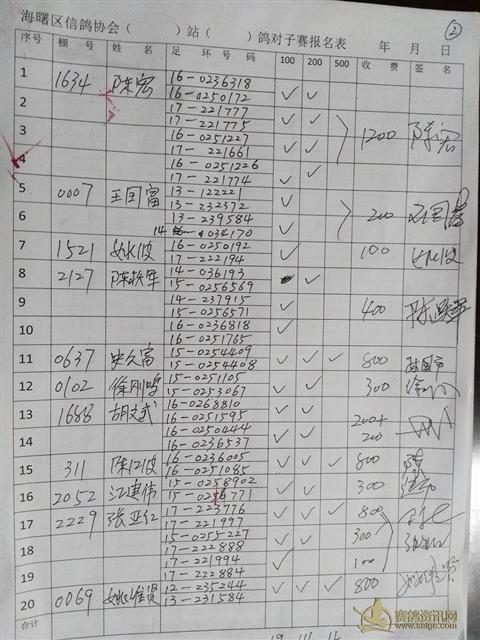 海曙区信鸽协会（ ）站（ ）鸽对子赛报名表 年 月 日 ②
序号 棚号 姓名 足环号码 100 200 500 收费 签名
1 1634 陈宏 16-0236318
16-0250172 ✓ ✓
2 17-221777
17-221775 ✓ ✓
3 16-0251227
17-221661 ✓ ✓ 1200 陈宏
4 16-0251226
17-221774 ✓ ✓
5 0007 王国富 13-12221
13-232372 ✓
6 13-239584 200
14 034170 ✓
7 1521 16-0250192
17-222194 ✓ 100
8 2127 陈跃军 14-036193
15-0256569 ✓
9 14-237915
15-0256571 ✓ 400
10 16-0236818
16-0251765 ✓
11 0637 史久富 15-0254409
15-0254408 ✓ ✓ ✓ 800
12 0102 徐刚鸣 15-0251105
15-0253067 ✓ ✓ 300
13 1688 胡文武 16-0268810
16-0251595 ✓ ✓ 200+
14 16-0250444 200
16-0236537 ✓ ✓
15 311 陈仁波 16-0236005
16-0251085 ✓ ✓ ✓ 800
16 2052 江建伟 15-0258902
15-0256771 ✓ ✓ 300
17 2229 张亚红 17-223776
17-221997 ✓ ✓ ✓ 800
18 15-0255227
17-222888 ✓ ✓ 300
19 17-221994
17-222884 ✓ 100
20 0069 12-235244
13-231584 ✓ ✓ ✓ 800
合计
赛鸽资讯网
www.saige.com